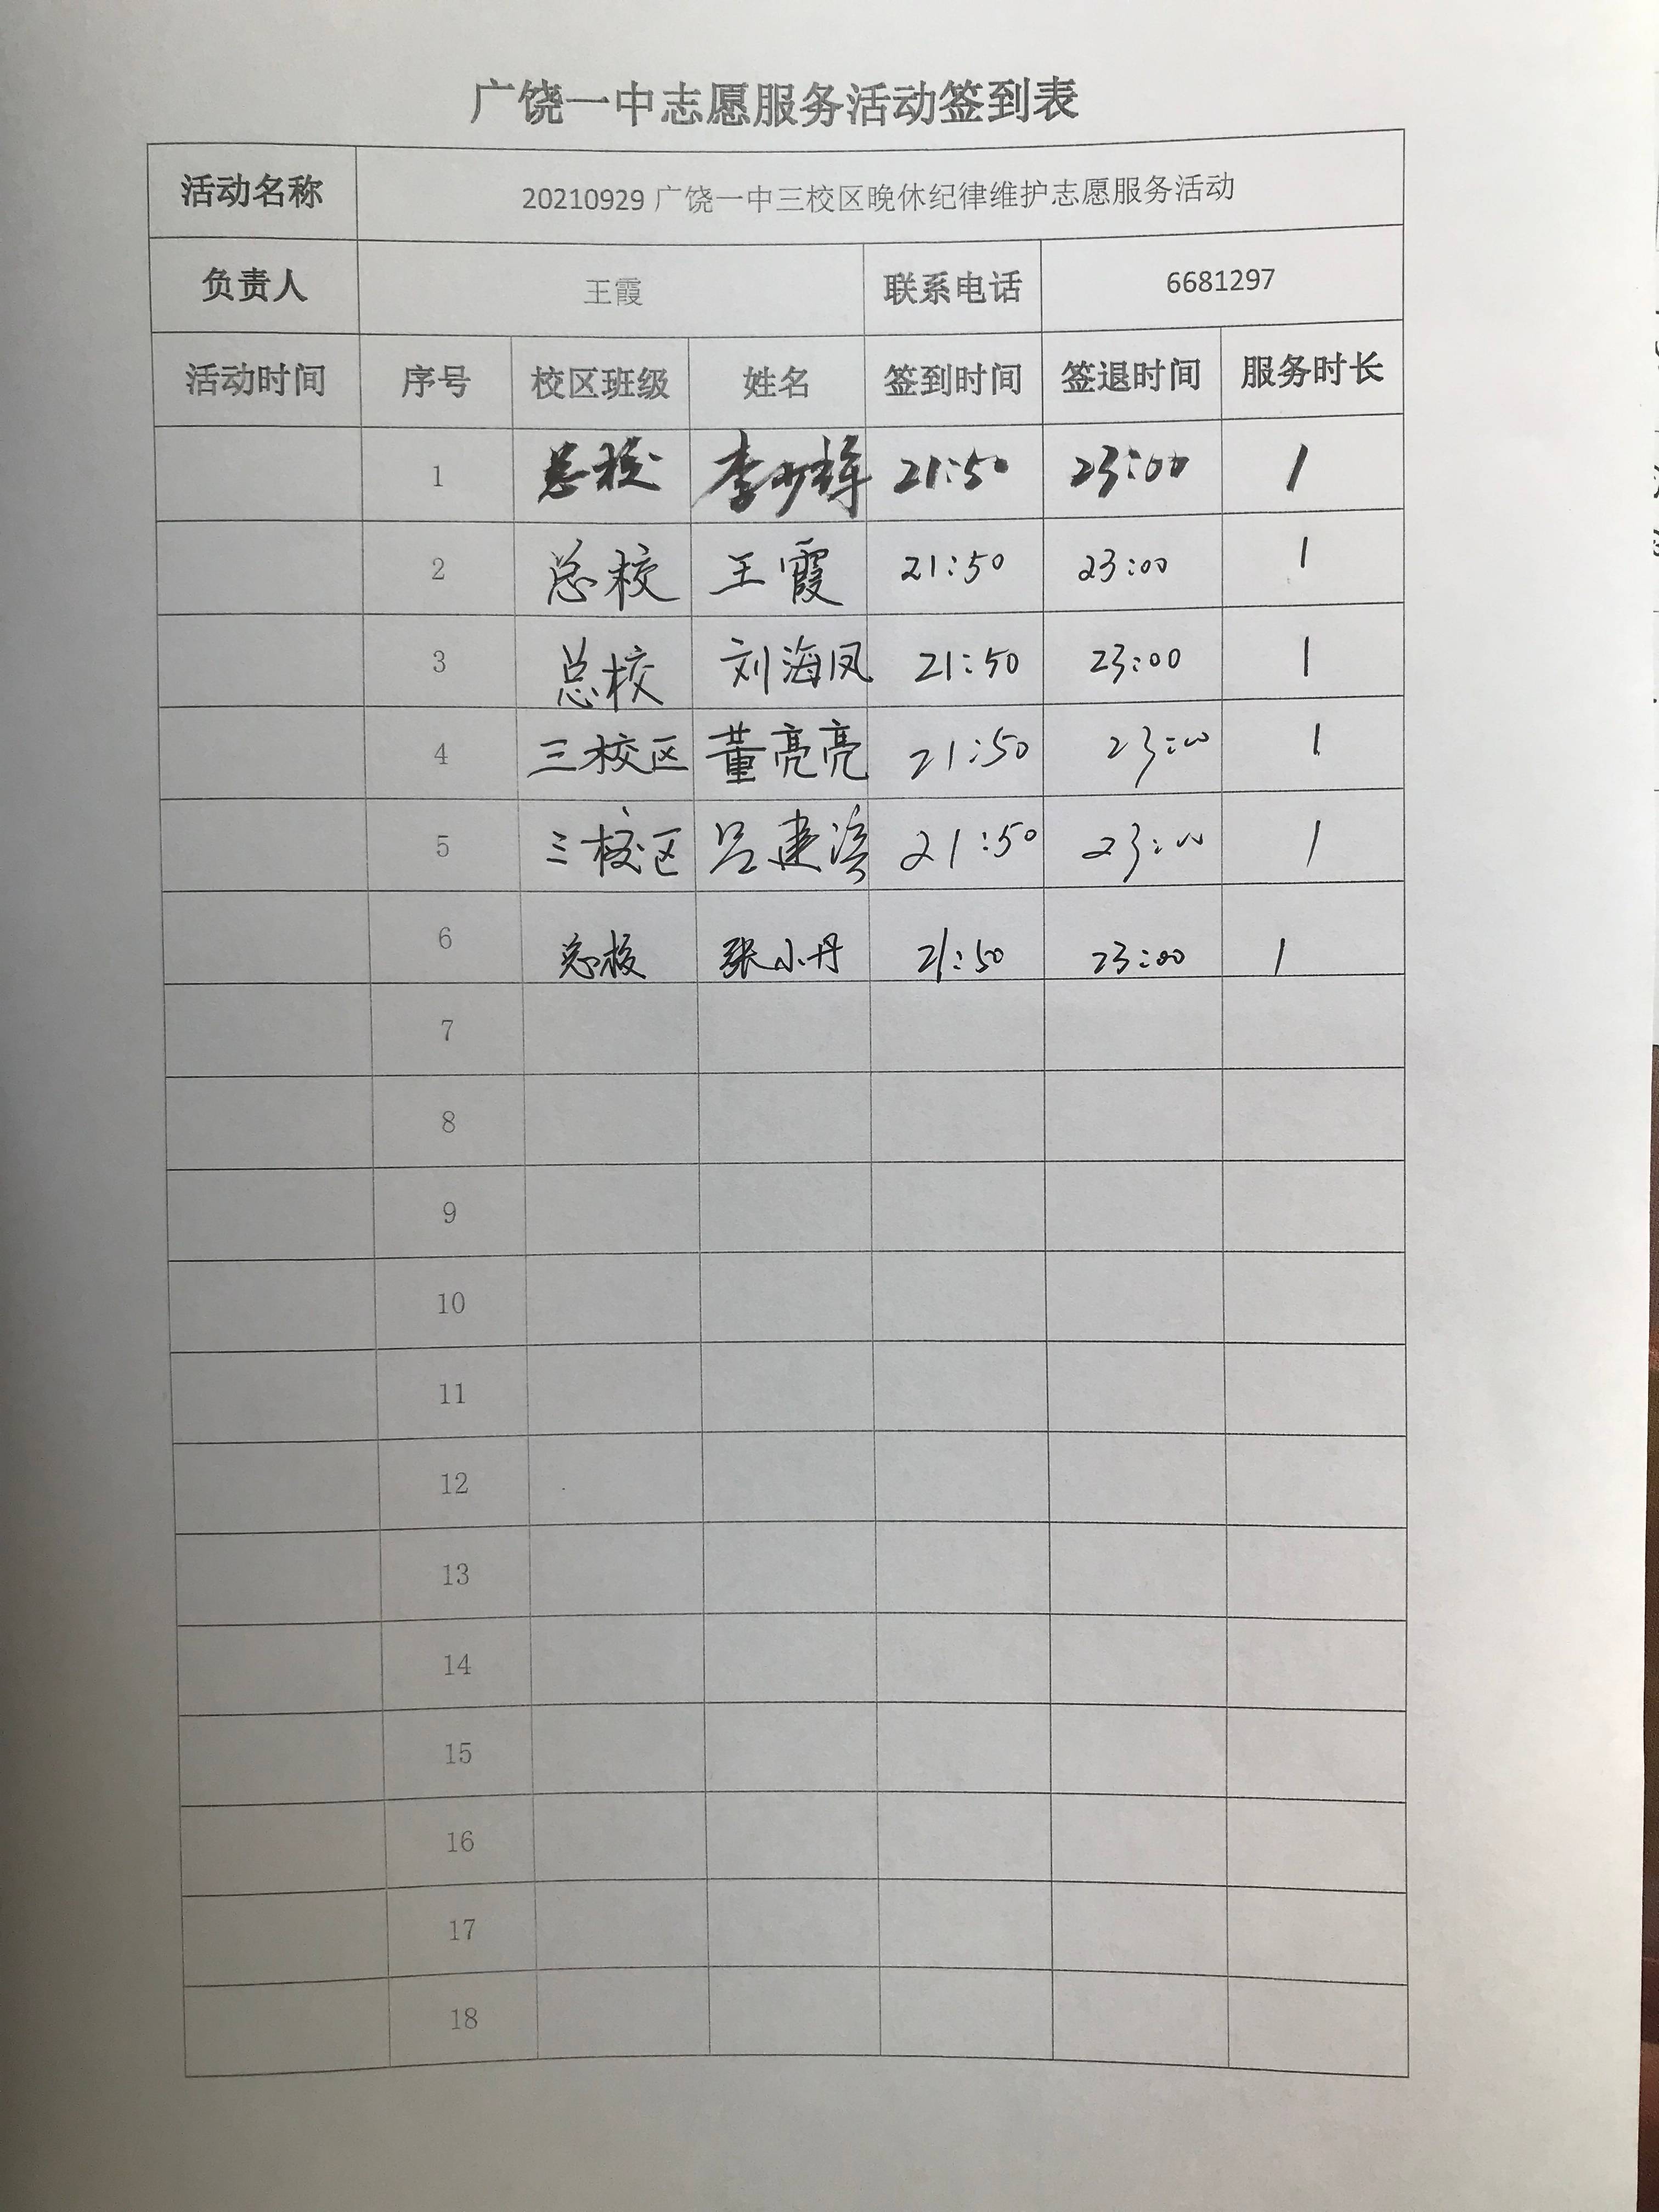 广饶一中志愿服务活动签到表
活动名称 20210929广饶一中三校区晚休纪律维护志愿服务活动
负责人 王霞 联系电话 6681297
活动时间 序号 校区班级 姓名 签到时间 签退时间 服务时长
1 总校 李 21:50 23:00 1
2 总校 王霞 21:50 23:00 1
3 总校 刘海凤 21:50 23:00 1
4 三校区 董亮亮 21:50 23:00 1
5 三校区 吕建滨 21:50 23:00 1
6 总校 张小丹 21:50 23:00 1
7
8
9
10
11
12
13
14
15
16
17
18